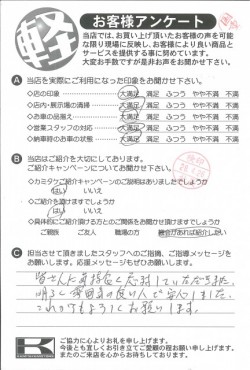 軽
お客様アンケート
当店では、お買い上げ頂いたお客様の声を可能
な限り現場に反映し、お客様により良い商品と
サービスを提供する事に努めています。
大変お手数ですが是非お声をお聞かせ下さい。
A 当店を実際にご利用になった印象をお聞かせ下さい。
◇店の印象 大満足 満足 ふつう やや不満 不満
◇店内・展示場の清掃 大満足 満足 ふつう やや不満 不満
◇お車の品揃え 大満足 満足 ふつう やや不満 不満
◇営業スタッフの対応 大満足 満足 ふつう やや不満 不満
◇納車時のお車の状態 大満足 満足 ふつう やや不満 不満
B 当店はご紹介を大切にしております。
ご紹介キャンペーンについてお聞かせ下さい。
◇カミタケご紹介キャンペーンのご説明はありましたでしょうか
はい いいえ
◇ご紹介を頂けますでしょうか
はい いいえ
◇具体的にご紹介頂ける方とのご関係をお聞かせ頂けますでしょうか
ご親戚 ご友人 職場の方 機会があれば紹介したい
C 担当させて頂きましたスタッフへのご指摘、ご指導メッセージを
お願いします。応援メッセージもぜひお願いします。
皆さんに気持良く応対していただきました。
明るく雰囲気の良い人で安心しました。
これからもよろしくお願いします。
ご協力に心よりお礼を申し上げます。
今後とも宜しくお引き立てご愛顧の程お願い申し上げます。
またのご来店を心からお待ちしております。